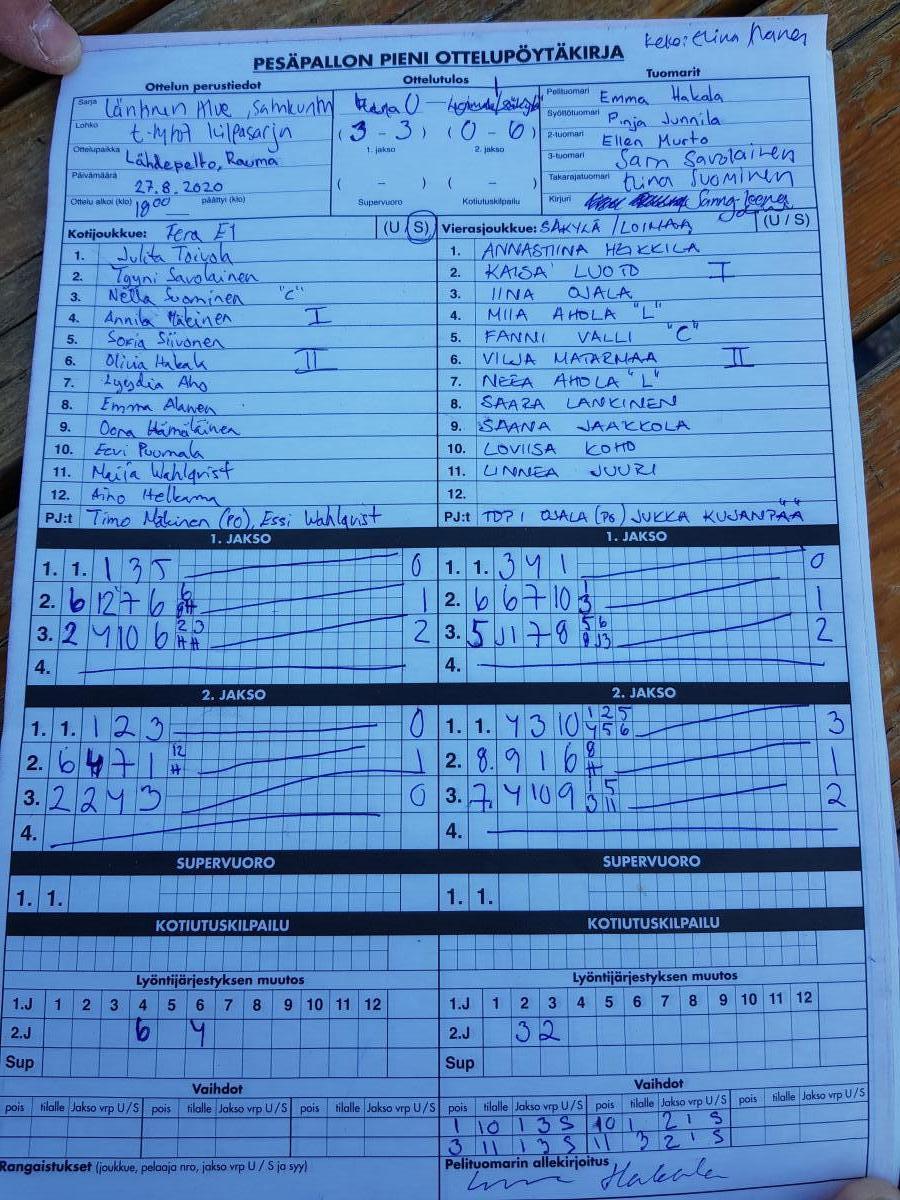 PESÄPALLON PIENI OTTELUPÖYTÄKIRJA
Ottelun perustiedot
Ottelutulos
Tuomarit
Sarja
Lohko
Ottelupaikka Lähdepelto, Rauma
Päivämäärä 27.8.2020
Ottelu alkoi (klo) 18 00 päättyi (klo)
( 3 - 3 ) ( 0 - 6 )
1. jakso 2. jakso
( - ) ( - )
Supervuoro Kotiutuskilpailu
Pelituomari Emma Hakala
Syöttötuomari Pinja Junnila
2-tuomari Ellen Murto
3-tuomari Sam Savolainen
Takarajatuomari Suominen
Kirjuri
Kotijoukkue: Fera E1 (U / S)
1. Julita Toivola
2. Tyyni Savolainen
3. Nella Suominen "C"
4. Annika Mäkinen I
5. Sofia Siivonen
6. Olivia Hakala II
7. Lyydia Aho
8. Emma Alanen
9. Oona Hämäläinen
10. Eevi Puomala
11. Maija Wahlqvist
12. Aino Helkama
PJ:t Timo Mäkinen (PO), Essi Wahlqvist
Vierasjoukkue: SÄKYLÄ / LOIMAA (U / S)
1. ANNASTIINA HEIKKILÄ
2. KAISA LUOTO I
3. IINA OJALA
4. MIIA AHOLA "L"
5. FANNI VALLI "C"
6. VILJA MATARMAA II
7. NEEA AHOLA "L"
8. SAARA LANKINEN
9. SAANA JAAKKOLA
10. LOVIISA KOHO
11. LINNEA JUURI
12.
PJ:t TOPI OJALA (PO) JUKKA KUJANPÄÄ
1. JAKSO
1. 1. 1 3 5 0
2. 6 12 7 6 1
3. 2 4 10 6 2 3 2
4.
1. JAKSO
1. 1. 3 4 1 0
2. 6 6 7 10 3 1
3. 5 11 7 8 2
4.
2. JAKSO
1. 1. 1 2 3 0
2. 6 4 7 1 12 1
3. 2 2 4 3 0
4.
2. JAKSO
1. 1. 4 3 10 1 2 5 4 5 6 3
2. 8. 9 1 6 8 1
3. 7 4 10 9 1 5 3 11 2
4.
SUPERVUORO
1. 1.
SUPERVUORO
1. 1.
KOTIUTUSKILPAILU
KOTIUTUSKILPAILU
Lyöntijärjestyksen muutos
1.J 1 2 3 4 5 6 7 8 9 10 11 12
2.J 6 4
Sup
Lyöntijärjestyksen muutos
1.J 1 2 3 4 5 6 7 8 9 10 11 12
2.J 3 2
Sup
Vaihdot
pois tilalle Jakso vrp U / S pois tilalle Jakso vrp U / S pois tilalle Jakso vrp U / S
Vaihdot
pois tilalle Jakso vrp U / S pois tilalle Jakso vrp U / S pois tilalle Jakso vrp U / S
1 10 1 3 S 10 1 2 1 S
3 11 1 3 S 11 3 2 1 S
Rangaistukset (joukkue, pelaaja nro, jakso vrp U / S ja syy)
Pelituomarin allekirjoitus
Hakala